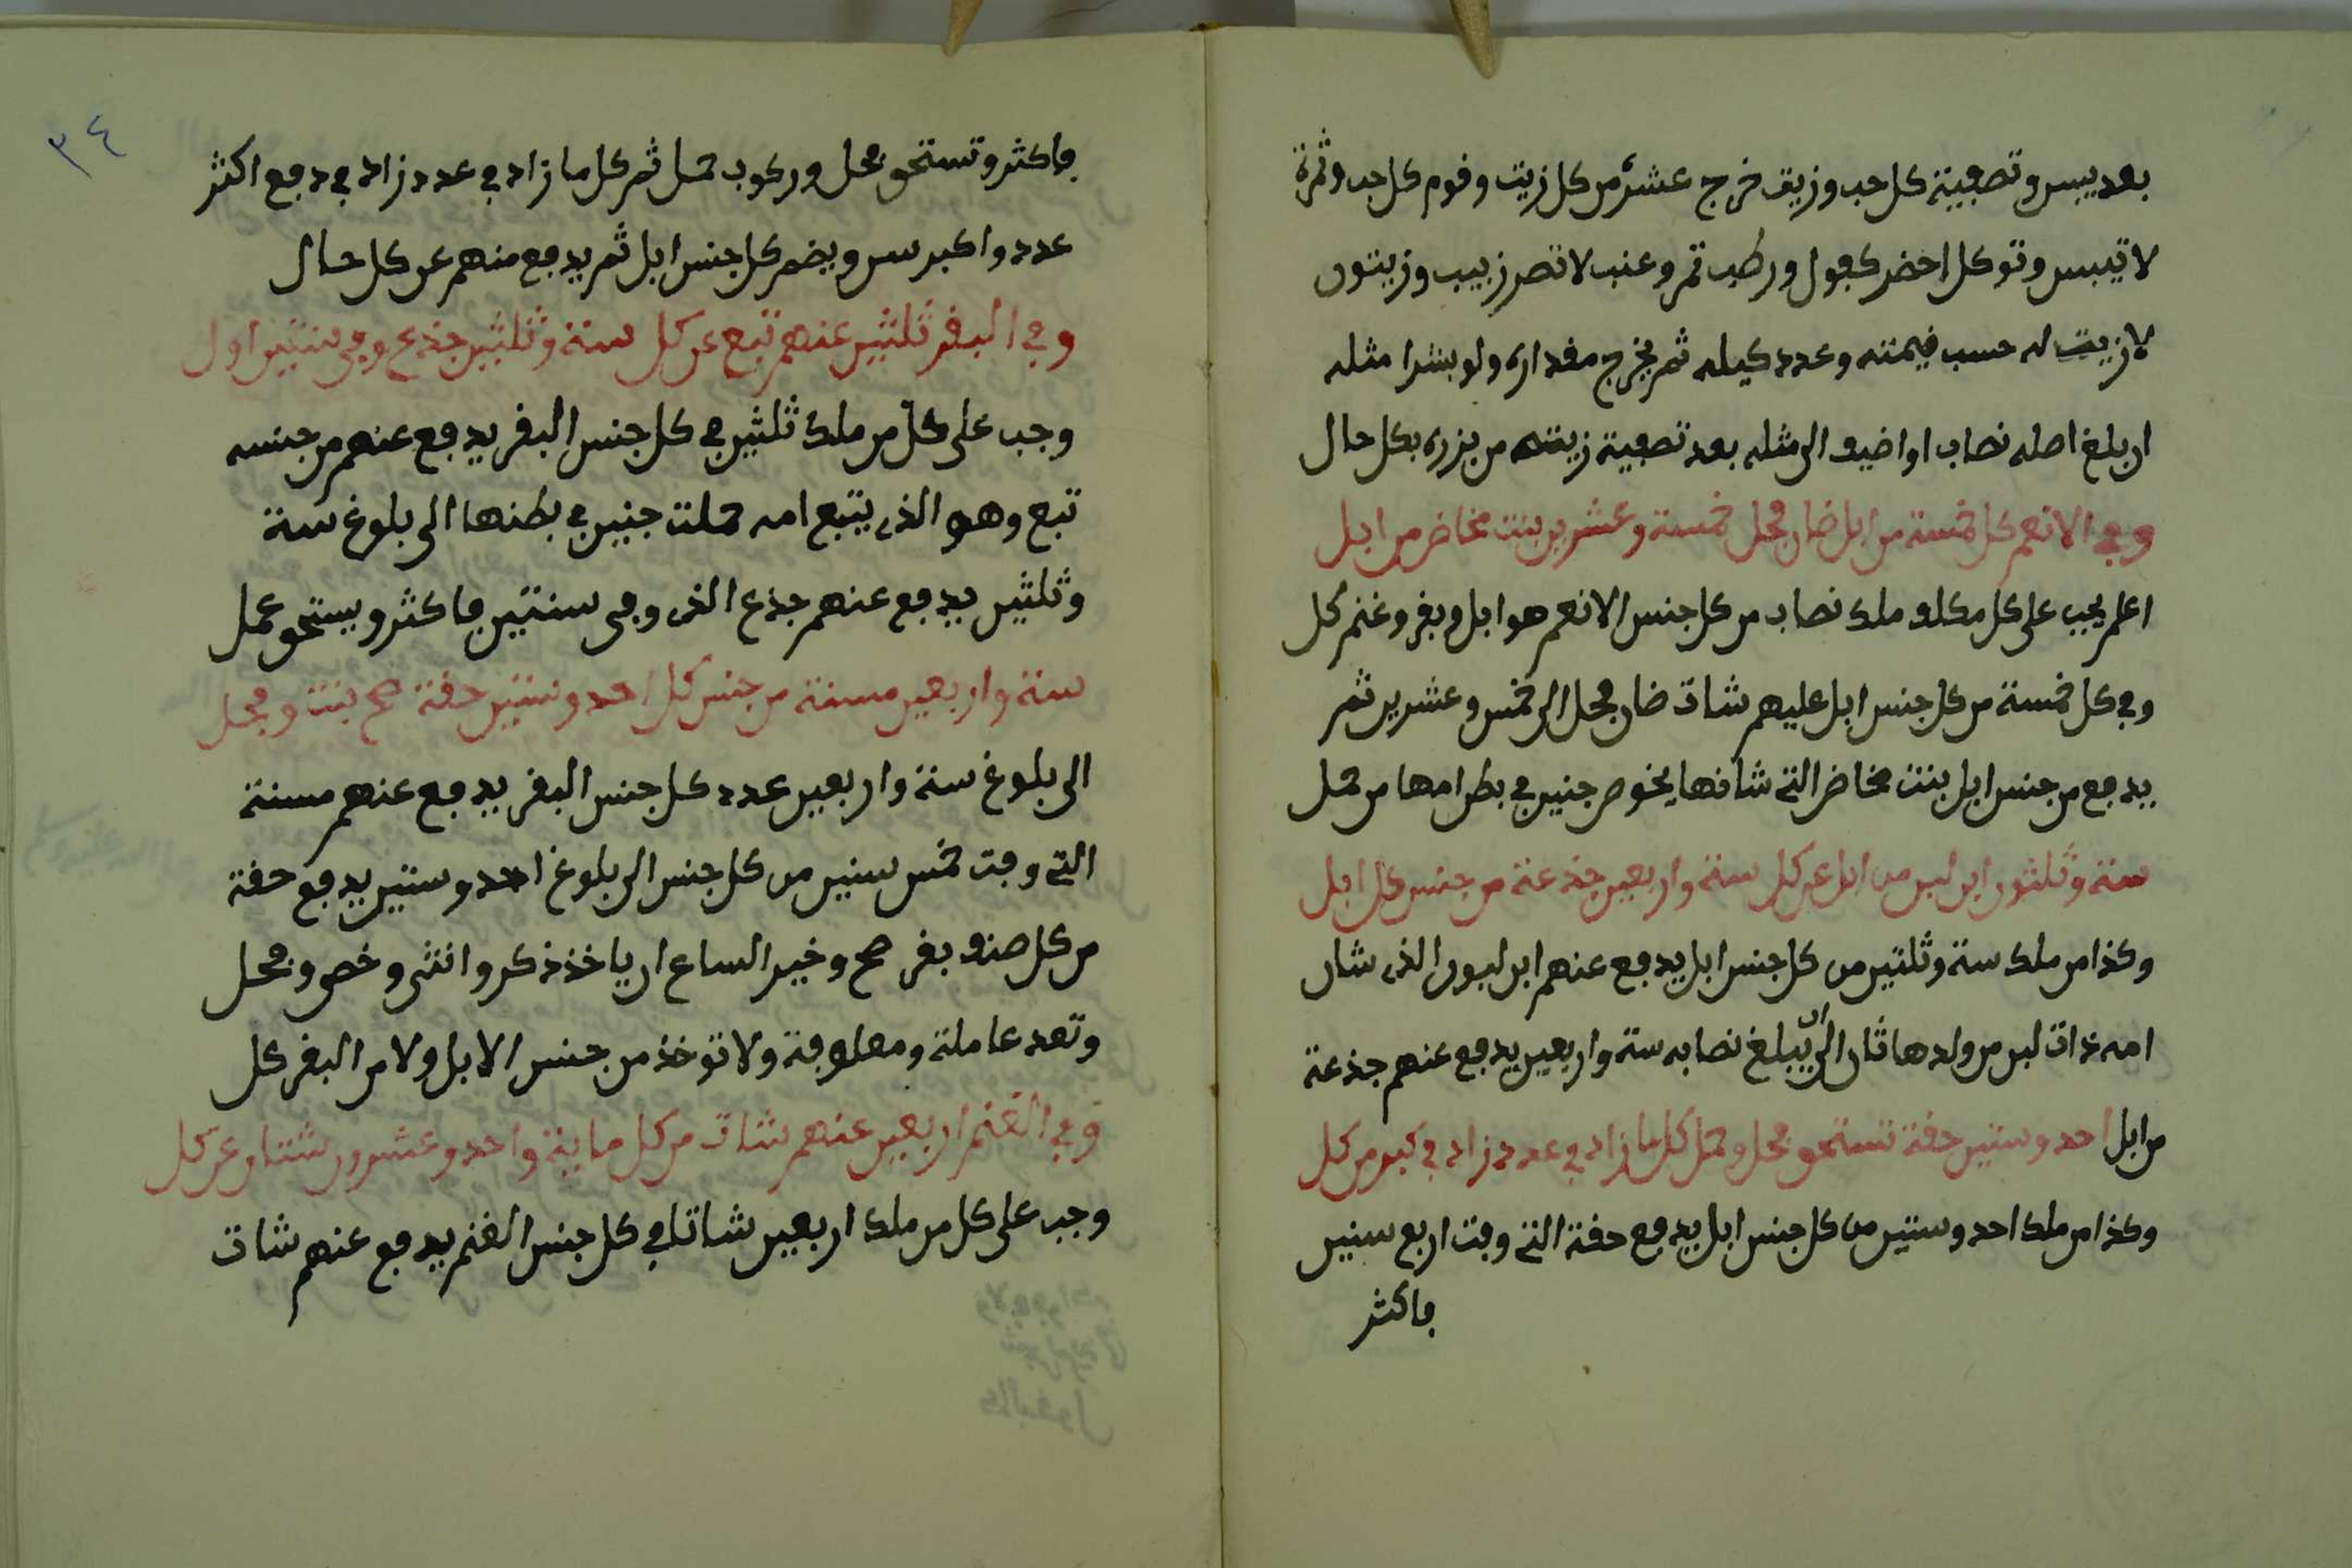 بعد يبس وتصفية كل حب وزيت خرج عشر من كل زيت وقوم كل حب وثمرة
لا تيبس وتوكل اخضر كفول ورطب تمر وعنب لا تصر زبيب وزيتون
لا زيت له حسب قيمته وعدد كيله ثم يخرج مقداره ولو بشرا مثله
ان بلغ اصله نصاب او اضيف الى مثله بعد تصفية زيته من بزره بكل حال
وفي الانعم كل خمسة من ابل ضان فحل خمسة وعشرين بنت مخاض من ابل
اعلم يجب على كل مكلف ملك نصاب من كل جنس الانعم هو ابل وبقر وغنم كل
وفي كل خمسة من كل جنس ابل عليهم شات ضان فحل الى خمس وعشرين ثم
يدفع من جنس ابل بنت مخاض التي شانها يخوض جنين في بطن امها من حمل
ستة وثلثون ابن لبون من ابل عن كل ستة واربعين جذعة من جنس كل ابل
وكذا من ملك ستة وثلثين من كل جنس ابل يدفع عنهم ابن لبون الذي شان
امه ذات لبن من ولدها ثان الى ان يبلغ نصابه ستة واربعين يدفع عنهم جذعة
من ابل احد وستين حقة تستحق فحل وحمل كل ما زاد في عدد زاد في كبر من كل
وكذا من ملك احد وستين من كل جنس ابل يدفع حقة التي وفت اربع سنين
فاكثر
٣٤
فاكثر وتستحق فحل وركوب حمل ثم كل ما زاد في عدد زاد في دفع اكثر
عدد واكبر سن ويضم كل جنس ابل ثم يدفع منهم عن كل حال
وفي البقر ثلثين عنهم تبع عن كل ستة وثلثين جذع وفى سنتين اول
وجب على كل من ملك ثلثين في كل جنس البقر يدفع عنهم من جنسه
تبع وهو الذي يتبع امه حملت جنين في بطنها الى بلوغ ستة
وثلثين يدفع عنهم جذع الذي وفى سنتين فاكثر ويستحق عمل
ستة واربعين مسنة من جنس كل احد وستين حقة صح بنت وفحل
الى بلوغ ستة واربعين عدد كل جنس البقر يدفع عنهم مسنة
التي وفت خمس سنين من كل جنس الى بلوغ احد وستين يدفع حقة
من كل صنف بقر صح وخير الساع ان ياخذ ذكر وانثى وخصى وفحل
وتعد عاملة ومعلوفة ولا توخذ من جنس الابل ولا من البقر كل
وفي الغنم اربعين عنهم شات من كل ماية واحد وعشرون شتان عن كل
وجب على كل من ملك اربعين شاتا في كل جنس الغنم يدفع عنهم شات